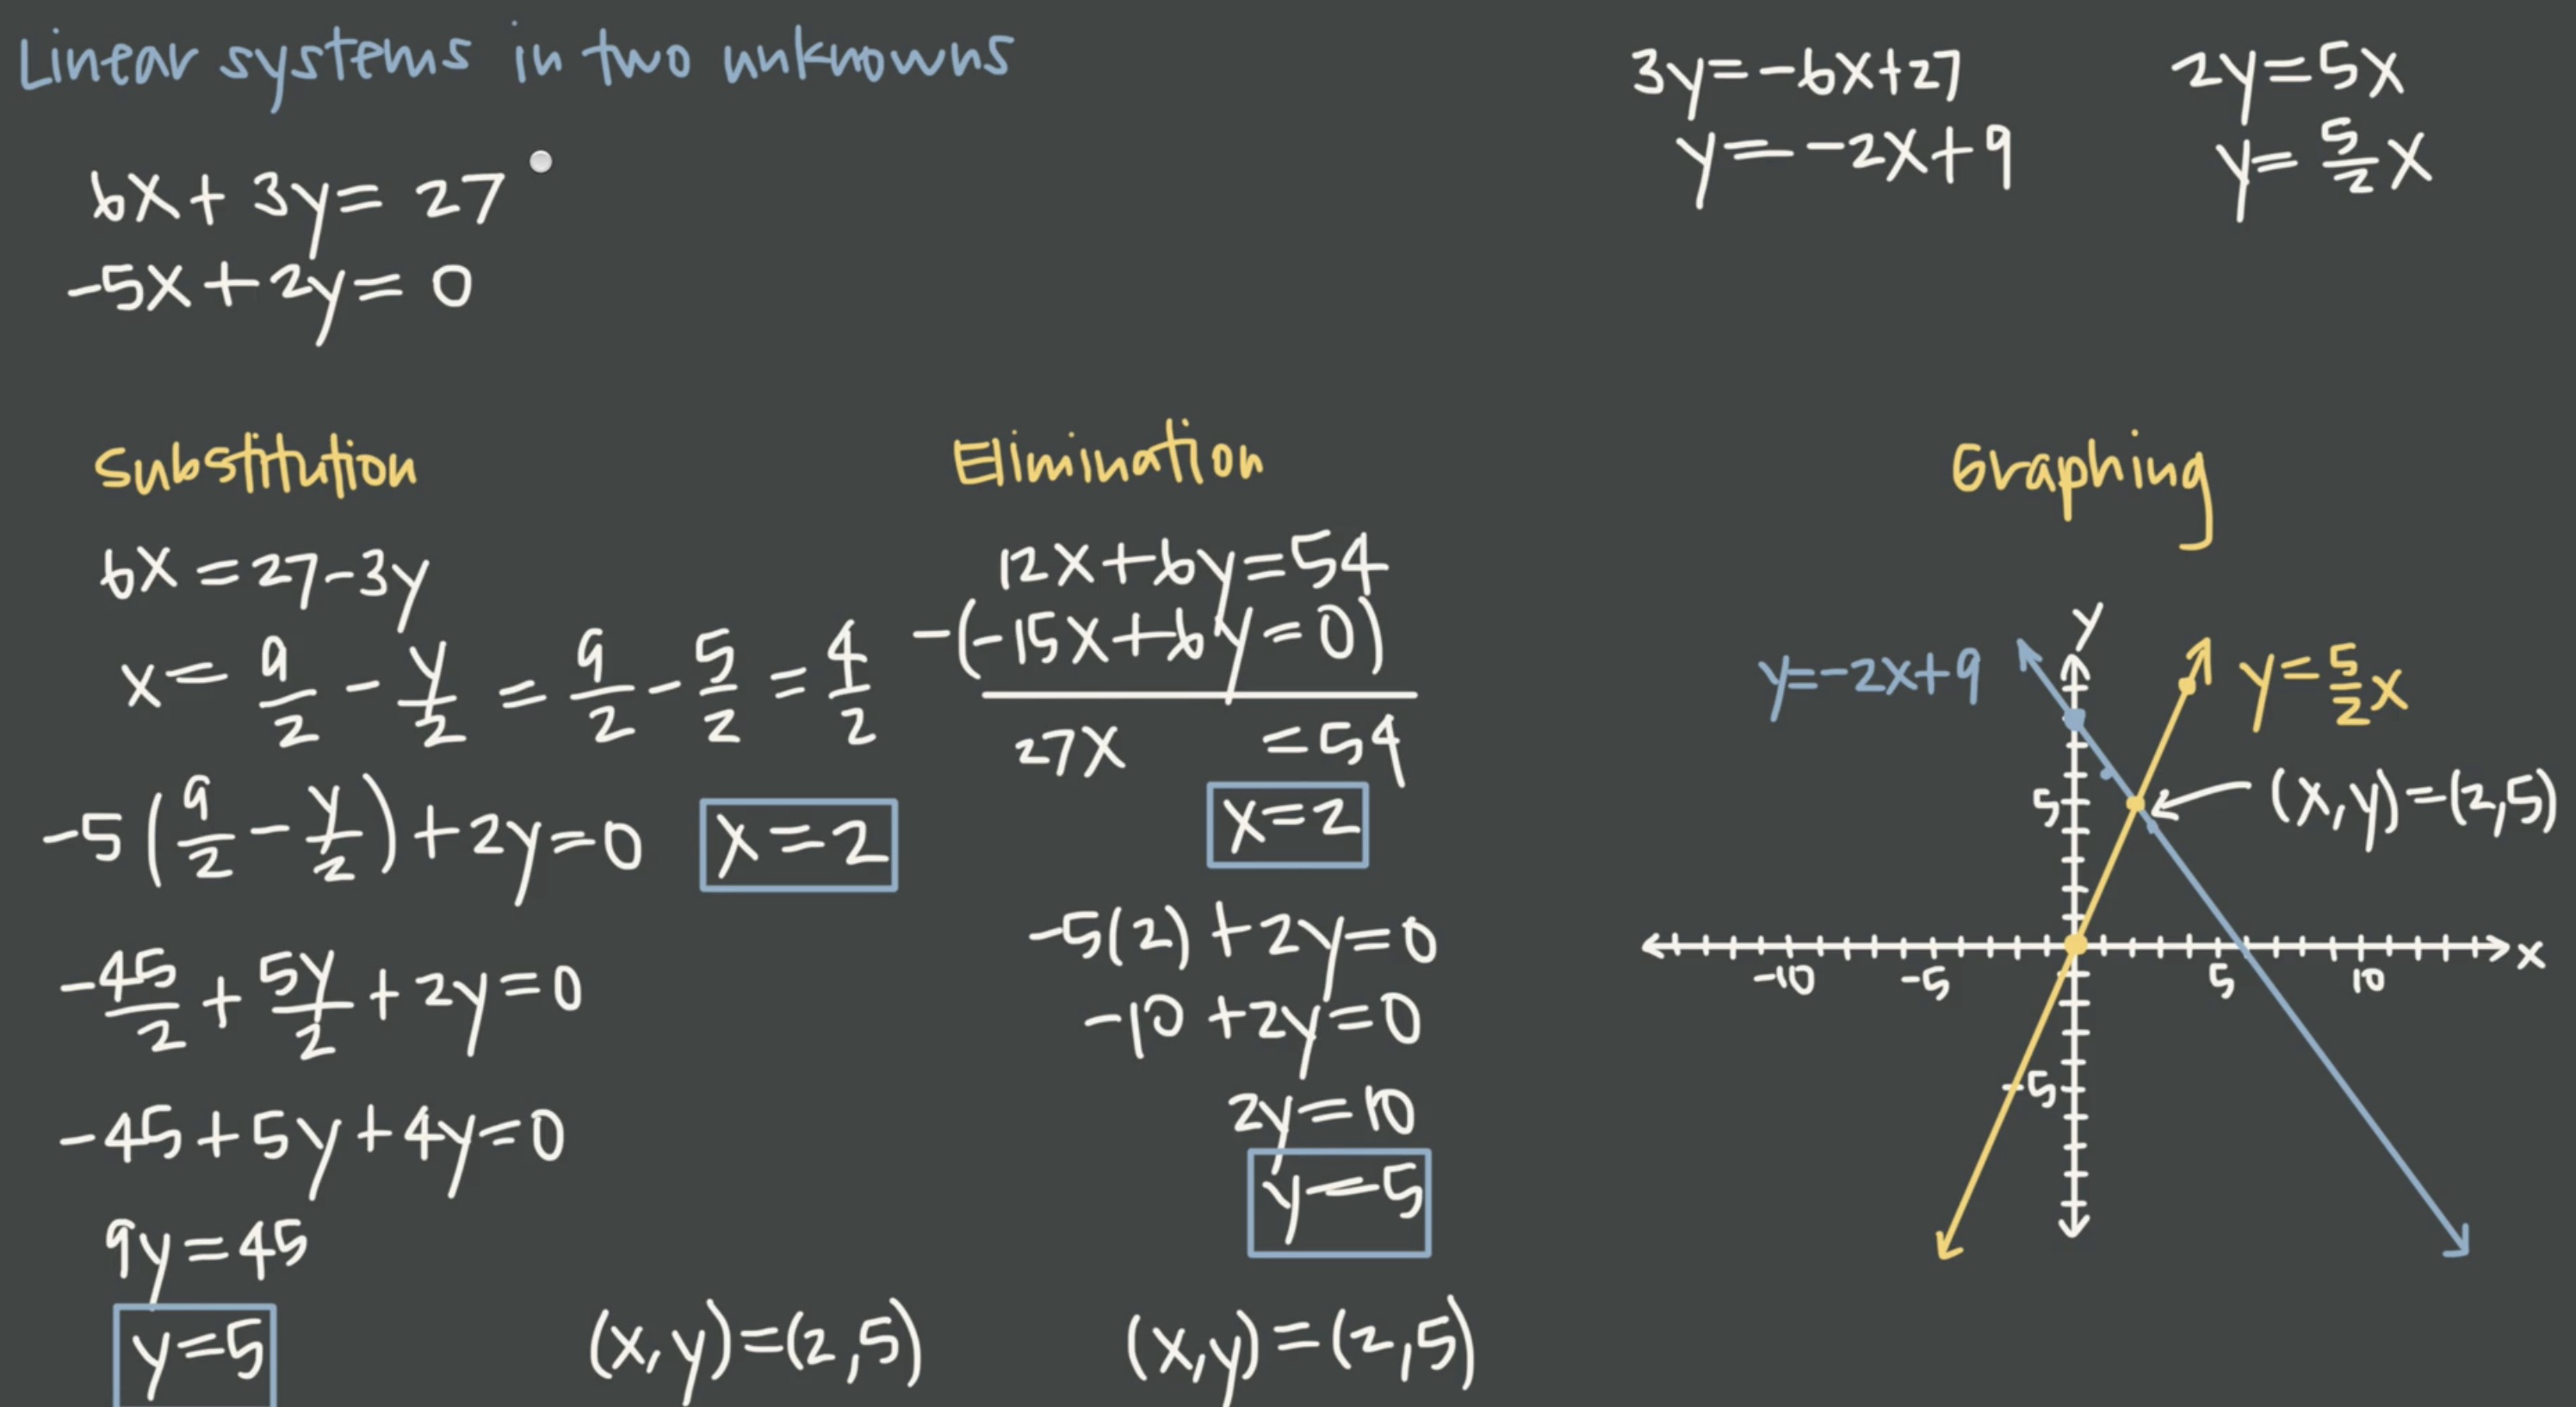 Linear systems in two unknowns
6x + 3y = 27
-5x + 2y = 0
3y = -6x + 27
y = -2x + 9
2y = 5x
y = 5/2 x
Substitution
6x = 27 - 3y
x = 9/2 - y/2 = 9/2 - 5/2 = 4/2
-5(9/2 - y/2) + 2y = 0
x = 2
-45/2 + 5y/2 + 2y = 0
-45 + 5y + 4y = 0
9y = 45
y = 5
(x,y) = (2,5)
Elimination
12x + 6y = 54
-(-15x + 6y = 0)
27x = 54
x = 2
-5(2) + 2y = 0
-10 + 2y = 0
2y = 10
y = 5
(x,y) = (2,5)
Graphing
y
y = -2x + 9
y = 5/2 x
(x,y) = (2,5)
5
-10 -5 5 10 x
-5